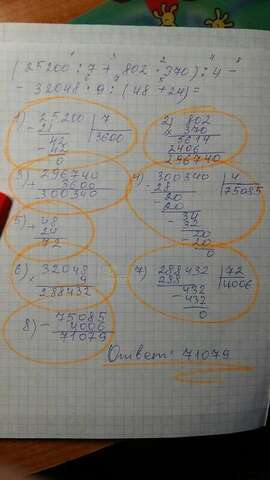 1 3 2 4 8
(25200 : 7 + 802 · 370) : 4 -
6 7 5
- 32048 · 9 : (48 + 24) =
1) 25200 | 7
- 21 3600
42
- 42
0
2) 802
× 370
5614
2406
296740
3) 296740
+ 3600
300340
4) 300340 | 4
- 28 75085
20
20
34
- 32
20
- 20
0
5) 48
+ 24
72
6) 32048
× 9
288432
7) 288432 | 72
288 4006
432
- 432
0
8) - 75085
4006
71079
Ответ: 71079